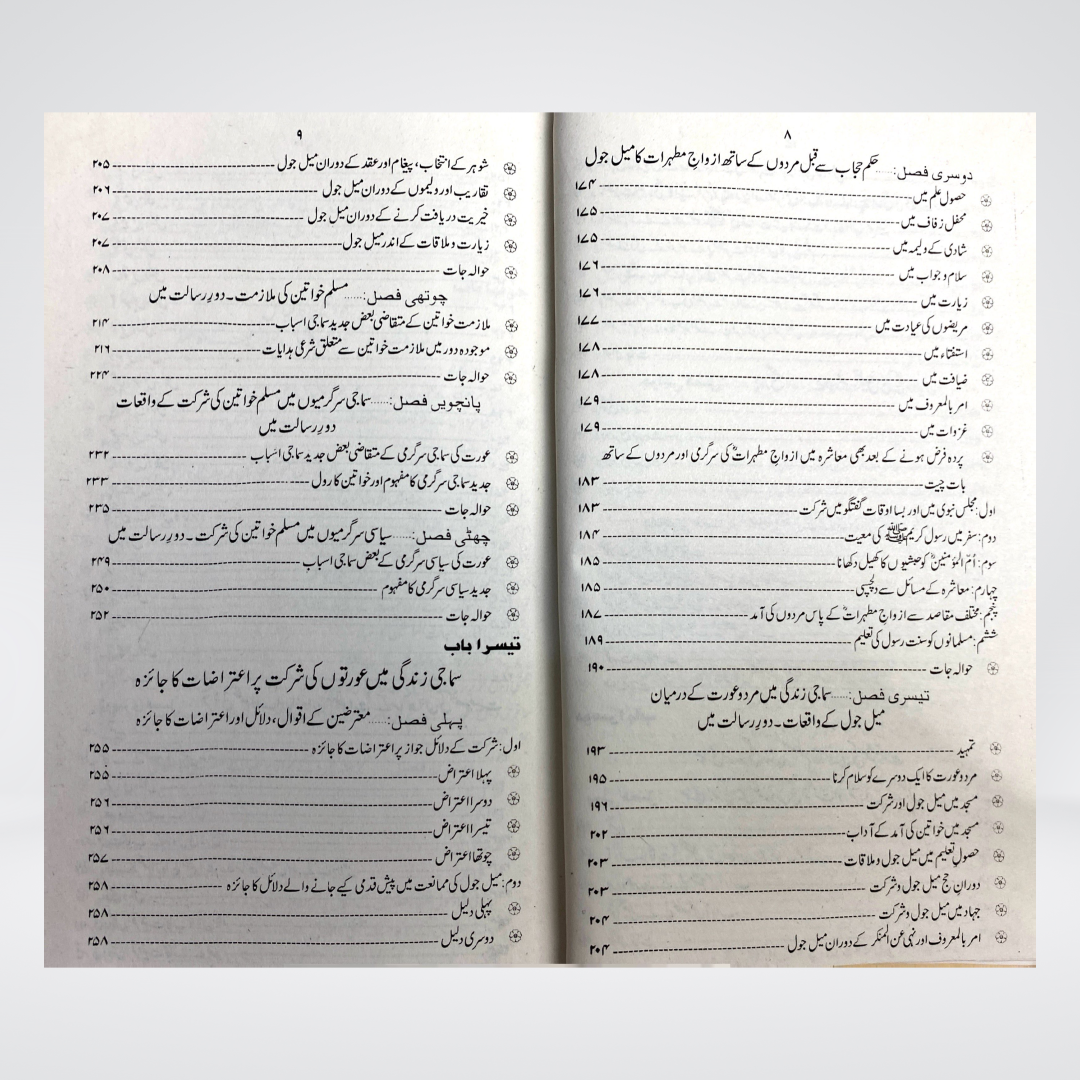 ۸
دوسری فصل:......حکم حجاب سے قبل مردوں کے ساتھ ازواجِ مطہرات کا میل جول
حصول علم میں ---- ۱۷۴
محفل زفاف میں ---- ۱۷۵
شادی کے ولیمہ میں ---- ۱۷۵
سلام و جواب میں ---- ۱۷۶
زیارت میں ---- ۱۷۶
مریضوں کی عیادت میں ---- ۱۷۷
استفتاء میں ---- ۱۷۸
ضیافت میں ---- ۱۷۸
امر بالمعروف میں ---- ۱۷۹
غزوات میں ---- ۱۷۹
پردہ فرض ہونے کے بعد بھی معاشرہ میں ازواجِ مطہراتؓ کی سرگرمی اور مردوں کے ساتھ
بات چیت ---- ۱۸۳
اول: مجلس نبوی میں اور بسا اوقات گفتگو میں شرکت ---- ۱۸۳
دوم: سفر میں رسول کریم ﷺ کی معیت ---- ۱۸۴
سوم: اُمّ المؤمنینؓ کو حبشیوں کا کھیل دکھانا ---- ۱۸۵
چہارم: معاشرہ کے مسائل سے دلچسپی ---- ۱۸۵
پنجم: مختلف مقاصد سے ازواجِ مطہراتؓ کے پاس مردوں کی آمد ---- ۱۸۷
ششم: مسلمانوں کو سنت رسول کی تعلیم ---- ۱۸۹
حوالہ جات ---- ۱۹۰
تیسری فصل:......سماجی زندگی میں مرد و عورت کے درمیان
میل جول کے واقعات۔ دورِ رسالت میں
تمہید ---- ۱۹۳
مرد و عورت کا ایک دوسرے کو سلام کرنا ---- ۱۹۵
مسجد میں میل جول اور شرکت ---- ۱۹۶
مسجد میں خواتین کی آمد کے آداب ---- ۲۰۲
حصولِ تعلیم میں میل جول و ملاقات ---- ۲۰۳
دورانِ حج میل جول و شرکت ---- ۲۰۳
جہاد میں میل جول و شرکت ---- ۲۰۴
امر بالمعروف اور نہی عن المنکر کے دوران میل جول ---- ۲۰۴
۹
شوہر کے انتخاب، پیغام اور عقد کے دوران میل جول ---- ۲۰۵
تقاریب اور ولیموں کے دوران میل جول ---- ۲۰۶
خیریت دریافت کرنے کے دوران میل جول ---- ۲۰۷
زیارت و ملاقات کے اندر میل جول ---- ۲۰۷
حوالہ جات ---- ۲۰۸
چوتھی فصل:......مسلم خواتین کی ملازمت۔ دورِ رسالت میں
ملازمت خواتین کے متقاضی بعض جدید سماجی اسباب ---- ۲۱۴
موجودہ دور میں ملازمت خواتین سے متعلق شرعی ہدایات ---- ۲۱۶
حوالہ جات ---- ۲۲۴
پانچویں فصل:......سماجی سرگرمیوں میں مسلم خواتین کی شرکت کے واقعات
دورِ رسالت میں
عورت کی سماجی سرگرمی کے متقاضی بعض جدید سماجی اسباب ---- ۲۳۲
جدید سماجی سرگرمی کا مفہوم اور خواتین کا رول ---- ۲۳۳
حوالہ جات ---- ۲۳۵
چھٹی فصل:......سیاسی سرگرمیوں میں مسلم خواتین کی شرکت۔ دورِ رسالت میں
عورت کی سیاسی سرگرمی کے بعض سماجی اسباب ---- ۲۴۹
جدید سیاسی سرگرمی کا مفہوم ---- ۲۵۰
حوالہ جات ---- ۲۵۲
تیسرا باب
سماجی زندگی میں عورتوں کی شرکت پر اعتراضات کا جائزہ
پہلی فصل:......معترضین کے اقوال، دلائل اور اعتراضات کا جائزہ
اول: شرکت کے دلائل جواز پر اعتراضات کا جائزہ ---- ۲۵۵
پہلا اعتراض ---- ۲۵۵
دوسرا اعتراض ---- ۲۵۶
تیسرا اعتراض ---- ۲۵۶
چوتھا اعتراض ---- ۲۵۷
دوم: میل جول کی ممانعت میں پیش قدمی کیے جانے والے دلائل کا جائزہ ---- ۲۵۸
پہلی دلیل ---- ۲۵۸
دوسری دلیل ---- ۲۵۸